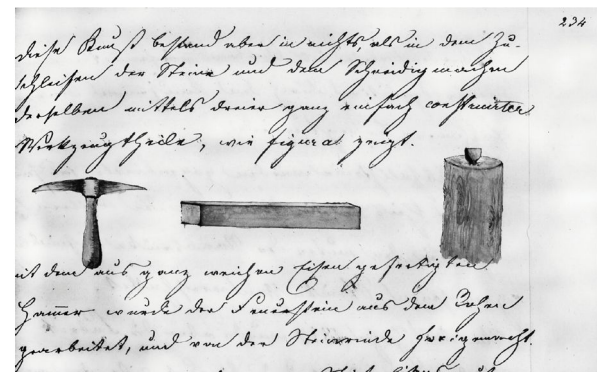 234
diese Kunst bestand aber in nichts, als in dem Zu-
schleifen der Steine und dem Schneidigmachen
derselben mittels dreier ganz einfach construirter
Werkzeugtheile, wie figura zeigt.
mit dem aus ganz weichen Eisen gefertigten
Hammer wurde der Feuerstein aus dem Rohen
gearbeitet, und von der Steinrinde frei gemacht.